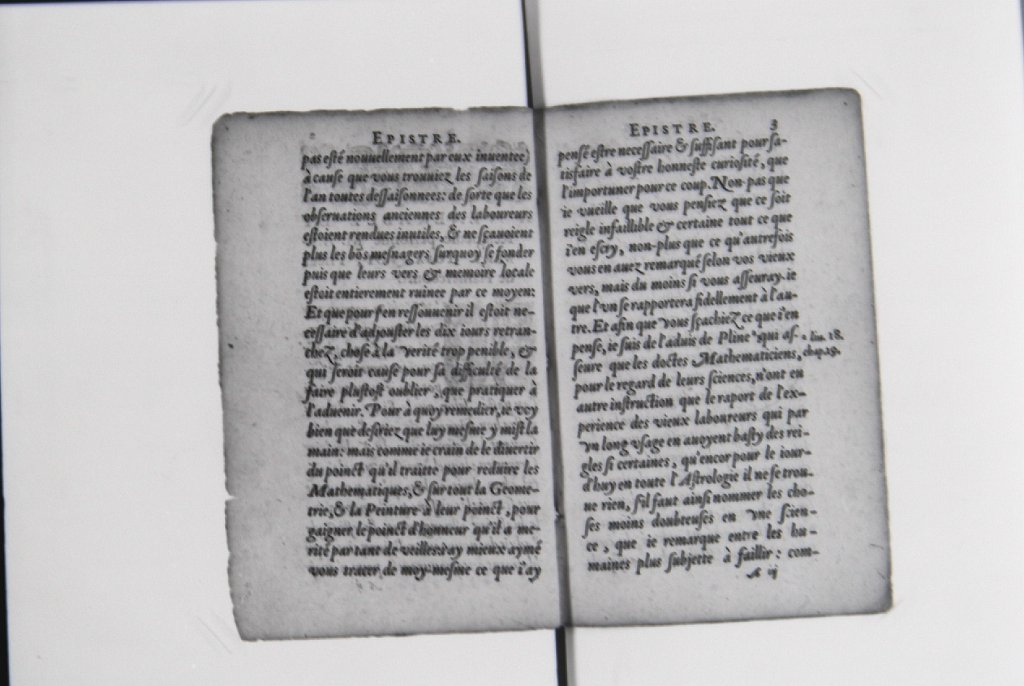 EPISTRE.
pas esté nouuellement par eux inuentee)
à cause que vous trouuiez les saisons de
l'an toutes dessaisonnees: de sorte que les
obseruations anciennes des laboureurs
estoient rendues inutiles, & ne sçauoient
plus les bõs mesnagers surquoy se fonder
puis que leurs vers & memoire locale
estoit entierement ruinee par ce moyen:
Et que pour s'en ressouuenir il estoit ne-
cessaire d'adjouster les dix iours retran-
chez, chose à la verité trop penible, &
qui seroit cause pour sa difficulté de la
faire plustost oublier, que pratiquer à
l'aduenir. Pour à quoy remedier, ie voy
bien que desiriez que luy mesme y mist la
main: mais comme ie crain de le diuertir
du poinct qu'il traitte pour reduire les
Mathematiques, & sur tout la Geome-
trie, & la Peinture à leur poinct, pour
gaigner le poinct d'honneur qu'il a me-
rité par tant de veilles: i'ay mieux aymé
vous tracer de moy-mesme ce que i'ay
EPISTRE. 3
pensé estre necessaire & suffisant pour sa-
tisfaire à vostre honneste curiosité, que
l'importuner pour ce coup. Non pas que
ie vueille que vous pensiez que ce soit
reigle infaillible & certaine tout ce que
i'en escry, non-plus que ce qu'autrefois
vous en auez remarqué selon vos vieux
vers, mais du moins si vous asseuray-ie
que l'vn se rapportera fidellement à l'au-
tre. Et afin que vous sçachiez ce que i'en
pense, ie suis de l'aduis de Pline qui as- a liu. 18.
seure que les doctes Mathematiciens, chap. 29.
pour le regard de leurs sciences, n'ont eu
autre instruction que le raport de l'ex-
perience des vieux laboureurs qui par
vn long vsage en auoyent basty des rei-
gles si certaines, qu'encor pour le iour-
d'huy en toute l'Astrologie il ne se trou-
ue rien, s'il faut ainsi nommer les cho-
ses moins doubteuses en vne scien-
ce, que ie remarque entre les hu-
maines plus subjette à faillir: com-
A ij